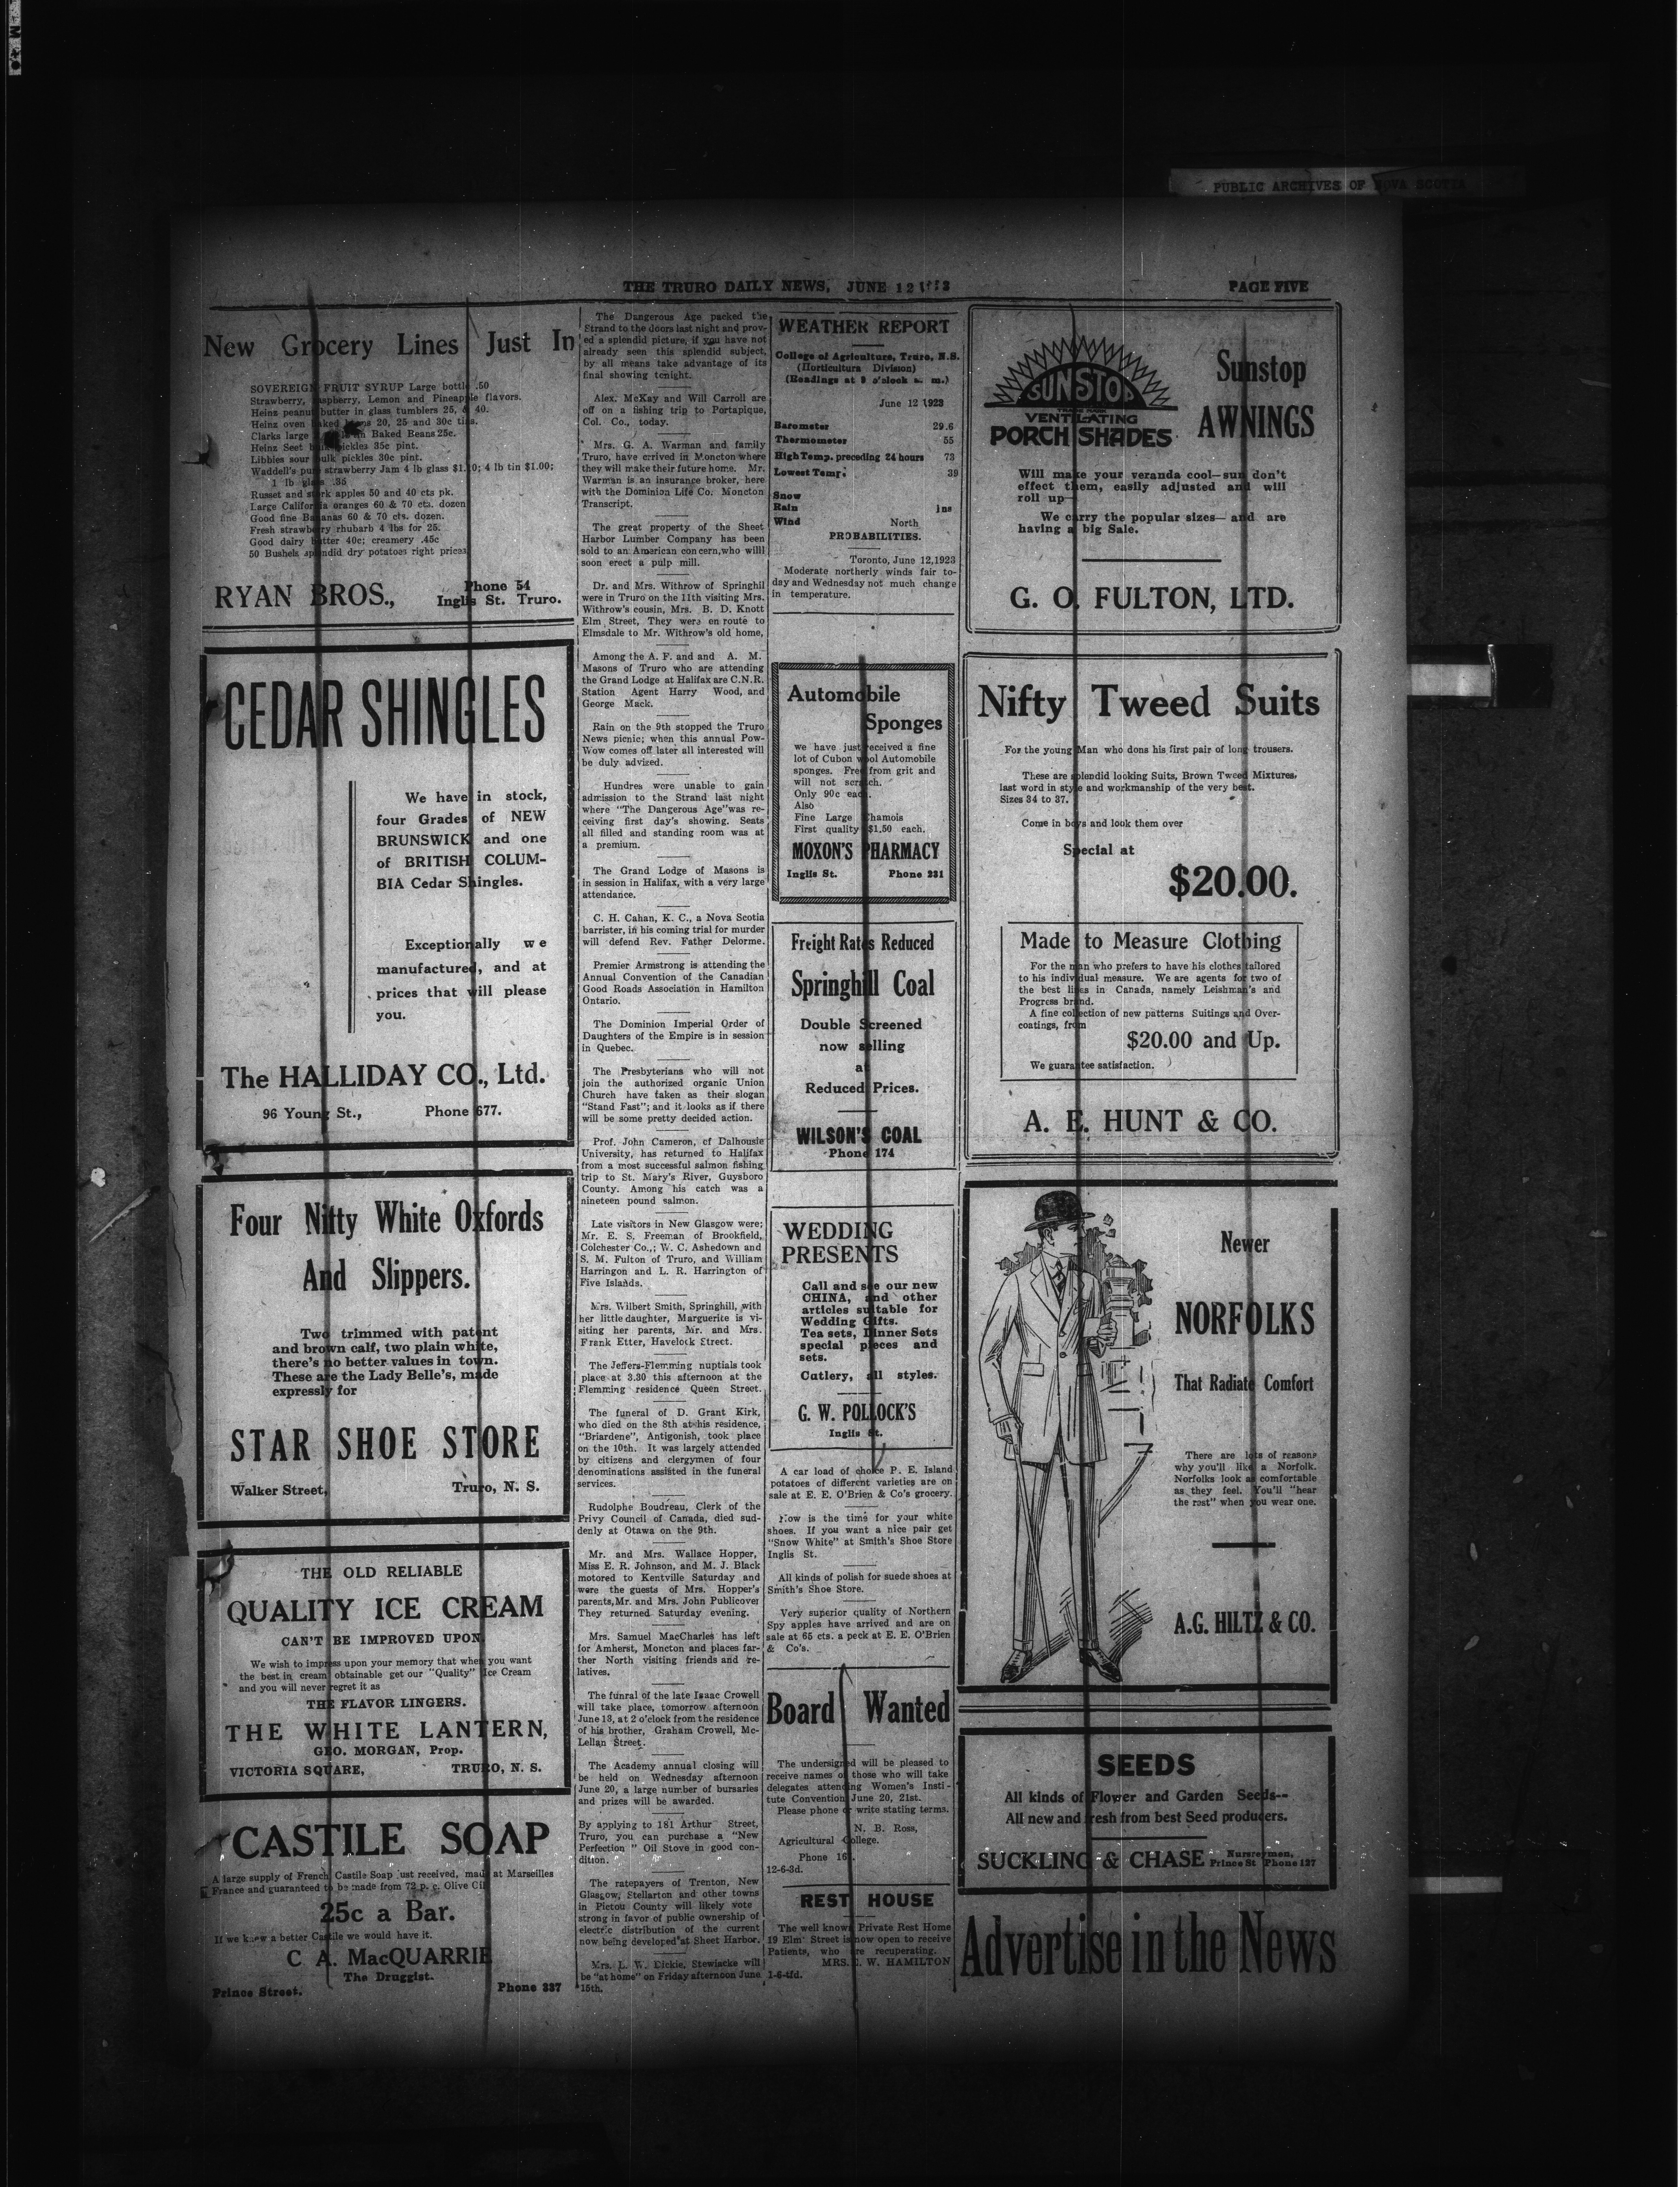 PUBLIC ARCHIVES OF NOVA SCOTIA
THE TRURO DAILY NEWS, JUNE 12
PAGE FIVE
New Grocery Lines Just In
SOVEREIGN FRUIT SYRUP Large bottle .50
Strawberry, Raspberry, Lemon and Pineapple flavors.
Heinz peanut butter in glass tumblers 25, & 40.
Heinz oven baked beans 20, 25 and 30c tins.
Clarks large Baked Beans 25c.
Heinz Seet pickles 35c pint.
Libbies sour bulk pickles 30c pint.
Waddell's pure strawberry Jam 4 lb glass $1. 4 lb tin $1.00;
1 lb glass .35
Russet and stark apples 50 and 40 cts pk.
Large California oranges 60 & 70 cts. dozen
Good fine Bananas 60 & 70 cts. dozen.
Fresh strawberry rhubarb 4 lbs for 25.
Good dairy butter 40c; creamery .45c
50 Bushels splendid dry potatoes right prices
RYAN BROS.,
Phone 54
Inglis St. Truro.
CEDAR SHINGLES
We have in stock,
four Grades of NEW
BRUNSWICK and one
of BRITISH COLUM-
BIA Cedar Shingles.
Exceptionally we
manufactured, and at
prices that will please
you.
The HALLIDAY CO., Ltd.
96 Young St., Phone 677.
Four Nitty White Oxfords
And Slippers.
Two trimmed with patent
and brown calf, two plain white,
there's no better values in town.
These are the Lady Belle's, made
expressly for
STAR SHOE STORE
Walker Street, Truro, N. S.
THE OLD RELIABLE
QUALITY ICE CREAM
CAN'T BE IMPROVED UPON
We wish to impress upon your memory that when you want
the best in cream obtainable get our "Quality" Ice Cream
and you will never regret it as
THE FLAVOR LINGERS.
THE WHITE LANTERN,
GEO. MORGAN, Prop.
VICTORIA SQUARE, TRURO, N. S.
CASTILE SOAP
A large supply of French Castile Soap just received, made at Marseilles
France and guaranteed to be made from 72 p. c. Olive Oil
25c a Bar.
If we knew a better Castile we would have it.
C A. MacQUARRIE
The Druggist.
Prince Street. Phone 337
The Dangerous Age packed the
Strand to the doors last night and prov-
ed a splendid picture, if you have not
already seen this splendid subject,
by all means take advantage of its
final showing tonight.
Alex. McKay and Will Carroll are
off on a fishing trip to Portapique,
Col. Co., today.
Mrs. G. A. Warman and family
Truro, have crrived in Moncton where
they will make their future home. Mr.
Warman is an insurance broker, here
with the Dominion Life Co. Moncton
Transcript.
The great property of the Sheet
Harbor Lumber Company has been
sold to an American concern,who willl
soon erect a pulp mill.
Dr. and Mrs. Withrow of Springhil
were in Truro on the 11th visiting Mrs.
Withrow's cousin, Mrs. B. D. Knott
Elm Street, They were en route to
Elmsdale to Mr. Withrow's old home,
Among the A. F. and and A. M.
Masons of Truro who are attending
the Grand Lodge at Halifax are C.N.R.
Station Agent Harry Wood, and
George Mack.
Rain on the 9th stopped the Truro
News picnic; when this annual Pow-
Wow comes off later all interested will
be duly advized.
Hundres were unable to gain
admission to the Strand last night
where "The Dangerous Age"was re-
ceiving first day's showing. Seats
all filled and standing room was at
a premium.
The Grand Lodge of Masons is
in session in Halifax, with a very large
attendance.
C. H. Cahan, K. C., a Nova Scotia
barrister, in his coming trial for murder
will defend Rev. Father Delorme.
Premier Armstrong is attending the
Annual Convention of the Canadian
Good Roads Association in Hamilton
Ontario.
The Dominion Imperial Order of
Daughters of the Empire is in session
in Quebec.
The Presbyterians who will not
join the authorized organic Union
Church have taken as their slogan
"Stand Fast"; and it looks as if there
will be some pretty decided action.
Prof. John Cameron, of Dalhousie
University, has returned to Halifax
from a most successful salmon fishing
trip to St. Mary's River, Guysboro
County. Among his catch was a
nineteen pound salmon.
Late visitors in New Glasgow were;
Mr. E. S. Freeman of Brookfield,
Colchester Co.,; W. C. Ashedown and
S. M. Fulton of Truro, and William
Harringon and L. R. Harrington of
Five Islands.
Mrs. Wilbert Smith, Springhill, with
her little daughter, Marguerite is vi-
siting her parents, Mr. and Mrs.
Frank Etter, Havelock Street.
The Jeffers-Flemming nuptials took
place at 3.30 this afternoon at the
Flemming residence Queen Street.
The funeral of D. Grant Kirk,
who died on the 8th at his residence,
"Briardene", Antigonish, took place
on the 10th. It was largely attended
by citizens and clergymen of four
denominations assisted in the funeral
services.
Rudolphe Boudreau, Clerk of the
Privy Council of Canada, died sud-
denly at Otawa on the 9th.
Mr. and Mrs. Wallace Hopper,
Miss E. R. Johnson, and M. J. Black
motored to Kentville Saturday and
were the guests of Mrs. Hopper's
parents,Mr. and Mrs. John Publicover
They returned Saturday evening.
Mrs. Samuel MacCharles has left
for Amherst, Moncton and places far-
ther North visiting friends and re-
latives.
The funral of the late Isaac Crowell
will take place, tomorrow afternoon
June 13, at 2 o'clock from the residence
of his brother, Graham Crowell, Mc-
Lellan Street.
The Academy annual closing will
be held on Wednesday afternoon
June 20, a large number of bursaries
and prizes will be awarded.
By applying to 181 Arthur Street,
Truro, you can purchase a "New
Perfection " Oil Stove in good con-
dition.
The ratepayers of Trenton, New
Glasgow, Stellarton and other towns
in Pictou County will likely vote
strong in favor of public ownership of
electric distribution of the current
now being developed at Sheet Harbor.
Mrs. L. W. Dickie, Stewiacke will
be "at home" on Friday afternoon June
15th.
WEATHER REPORT
College of Agriculture, Truro, N.S.
(Horticultura Division)
(Readings at 9 o'clock a. m.)
June 12 1923
Barometer 29.6
Thermometer 55
High Temp. preceding 24 hours 73
Lowest Temp. 39
Snow
Rain ins
Wind North
PROBABILITIES.
Toronto, June 12,1923
Moderate northerly winds fair to-
day and Wednesday not much change
in temperature.
Automobile
Sponges
we have just received a fine
lot of Cubon wool Automobile
sponges. Free from grit and
will not scratch.
Only 90c each.
Also
Fine Large Chamois
First quality $1.50 each.
MOXON'S PHARMACY
Inglis St. Phone 231
Freight Rates Reduced
Springhill Coal
Double Screened
now selling
at
Reduced Prices.
WILSON'S COAL
Phone 174
WEDDING
PRESENTS
Call and see our new
CHINA, and other
articles suitable for
Wedding Gifts.
Tea sets, Dinner Sets
special pieces and
sets.
Catlery, all styles.
G. W. POLLOCK'S
Inglis St.
A car load of choice P. E. Island
potatoes of different varieties are on
sale at E. E. O'Brien & Co's grocery.
Now is the time for your white
shoes. If you want a nice pair get
"Snow White" at Smith's Shoe Store
Inglis St.
All kinds of polish for suede shoes at
Smith's Shoe Store.
Very superior quality of Northern
Spy apples have arrived and are on
sale at 65 cts. a peck at E. E. O'Brien
& Co's.
Board Wanted
The undersigned will be pleased to
receive names of those who will take
delegates attending Women's Insti-
tute Convention June 20, 21st.
Please phone or write stating terms.
N. B. Ross,
Agricultural College.
Phone
12-6-3d.
REST HOUSE
The well known Private Rest Home
19 Elm Street is now open to receive
Patients, who are recuperating.
MRS. W. HAMILTON
1-6-tfd.
SUNSTOP
VENTILATING
PORCH SHADES
Sunstop
AWNINGS
Will make your veranda cool—sun don't
effect them, easily adjusted and will
roll up—
We carry the popular sizes—and are
having a big Sale.
G. O. FULTON, LTD.
Nifty Tweed Suits
For the young Man who dons his first pair of long trousers.
These are splendid looking Suits, Brown Tweed Mixtures,
last word in style and workmanship of the very best.
Sizes 34 to 37.
Come in boys and look them over
Special at
$20.00.
Made to Measure Clothing
For the man who prefers to have his clothes tailored
to his individual measure. We are agents for two of
the best lines in Canada, namely Leishman's and
Progress brand.
A fine collection of new patterns Suitings and Over-
coatings, from
$20.00 and Up.
We guarantee satisfaction.
A. E. HUNT & CO.
Newer
NORFOLKS
That Radiate Comfort
There are lots of reasons
why you'll like a Norfolk.
Norfolks look as comfortable
as they feel. You'll "hear
the rest" when you wear one.
A.G. HILTZ & CO.
SEEDS
All kinds of Flower and Garden Seeds--
All new and fresh from best Seed producers.
SUCKLING & CHASE
Nurserymen,
Prince St Phone 127
Advertise in the News